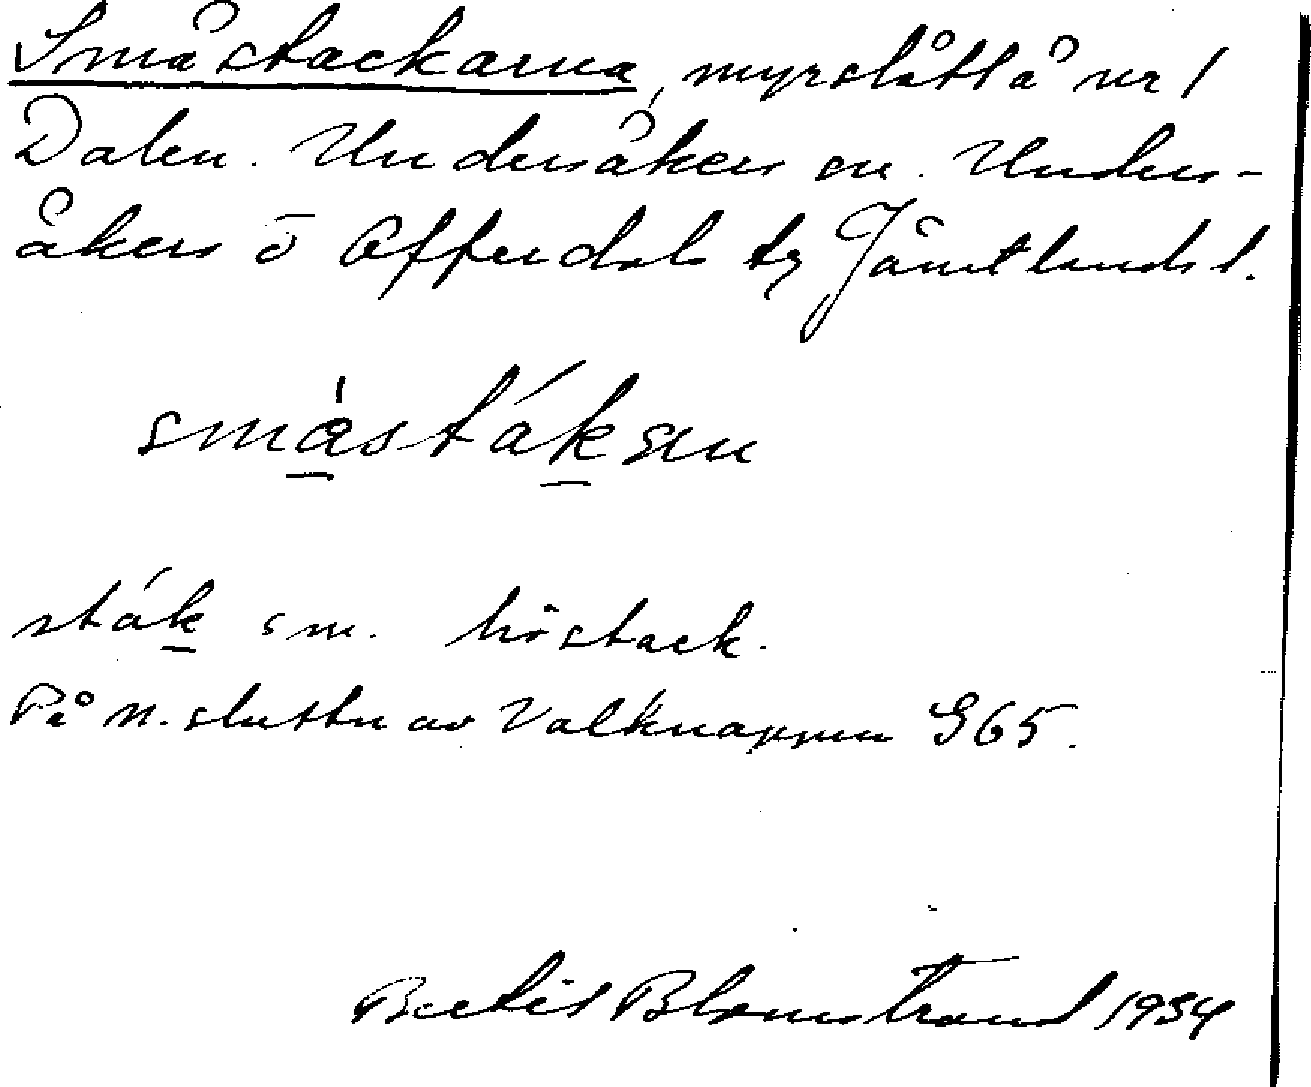 Småstackarna, myrslått å nr 1
Dalen. Undersåkers sn. Unders-
åkers o Offerdals tg Jämtlands l.
småstáken
sták sm. höstack.
På N. sluttn av Valknappen 965.
Bertil Blomstrand 1934